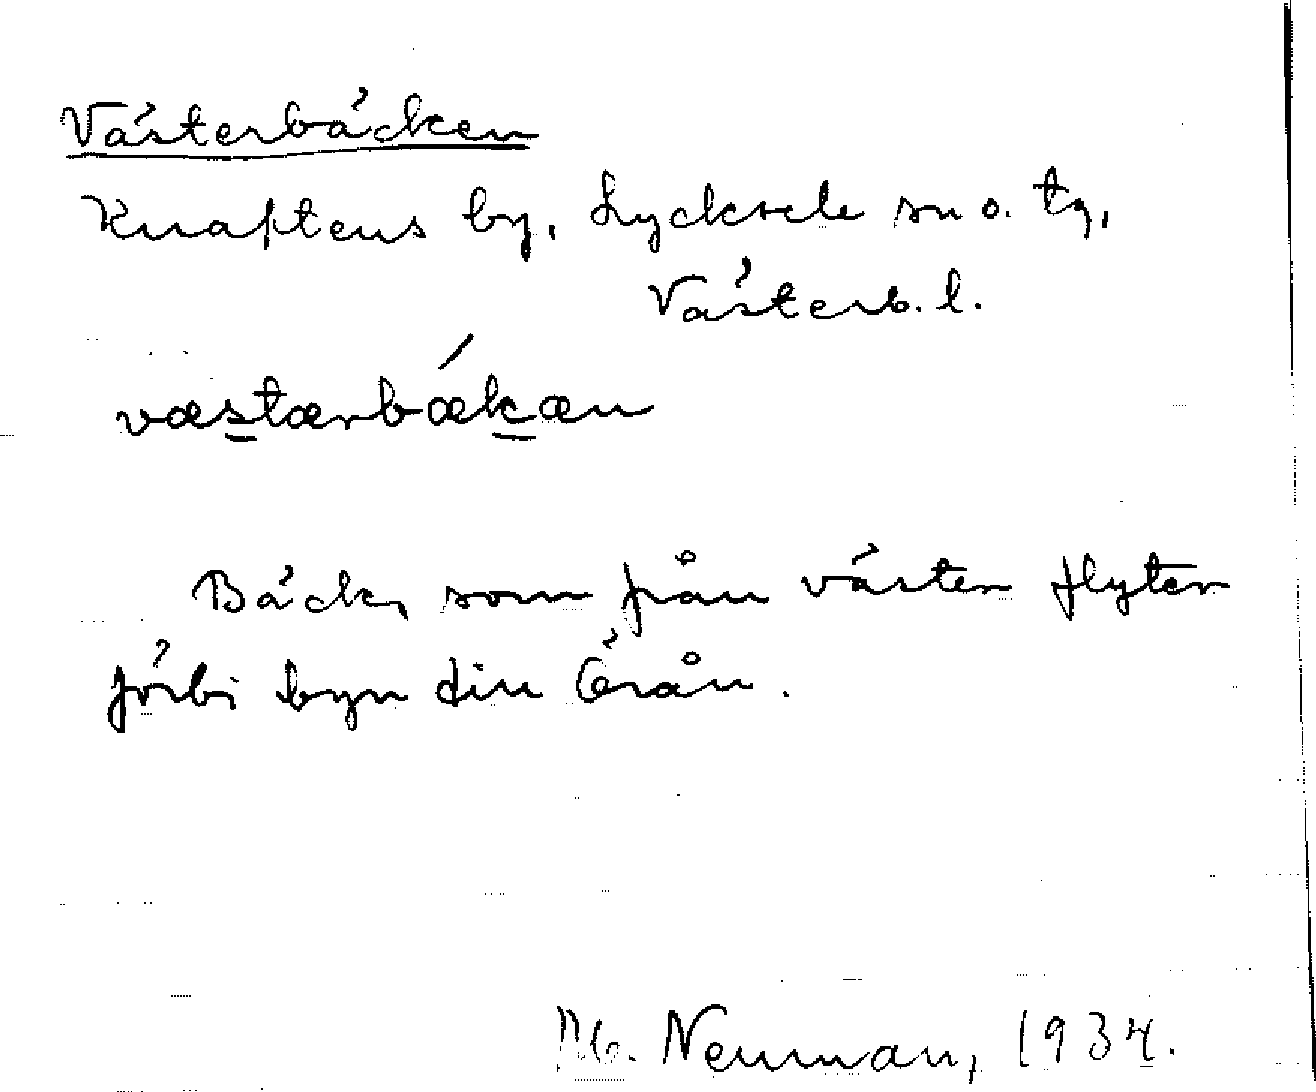 Västerbäcken
Knaftens by, Lycksele sn o. tg,
Västerb. l.
væstærbǽkæn
Bäck, som från väster flyter
förbi byn till Örån.
Neuman, 1934.